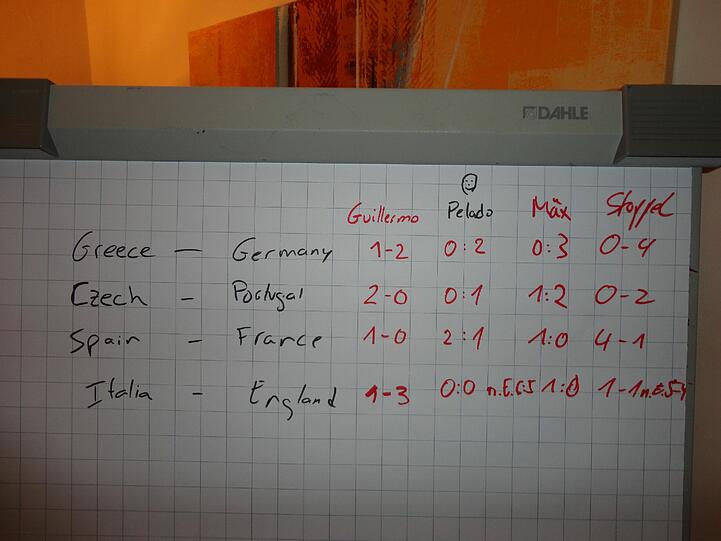 DAHLE
Guillermo Pelado Mäx Stoffel
Greece - Germany 1-2 0:2 0:3 0-4
Czech - Portugal 2-0 0:1 1:2 0-2
Spain - France 1-0 2:1 1:0 4-1
Italia - England 1-3 0:0 n.E. 6:5 1:0 1-1 n.E. 5-4